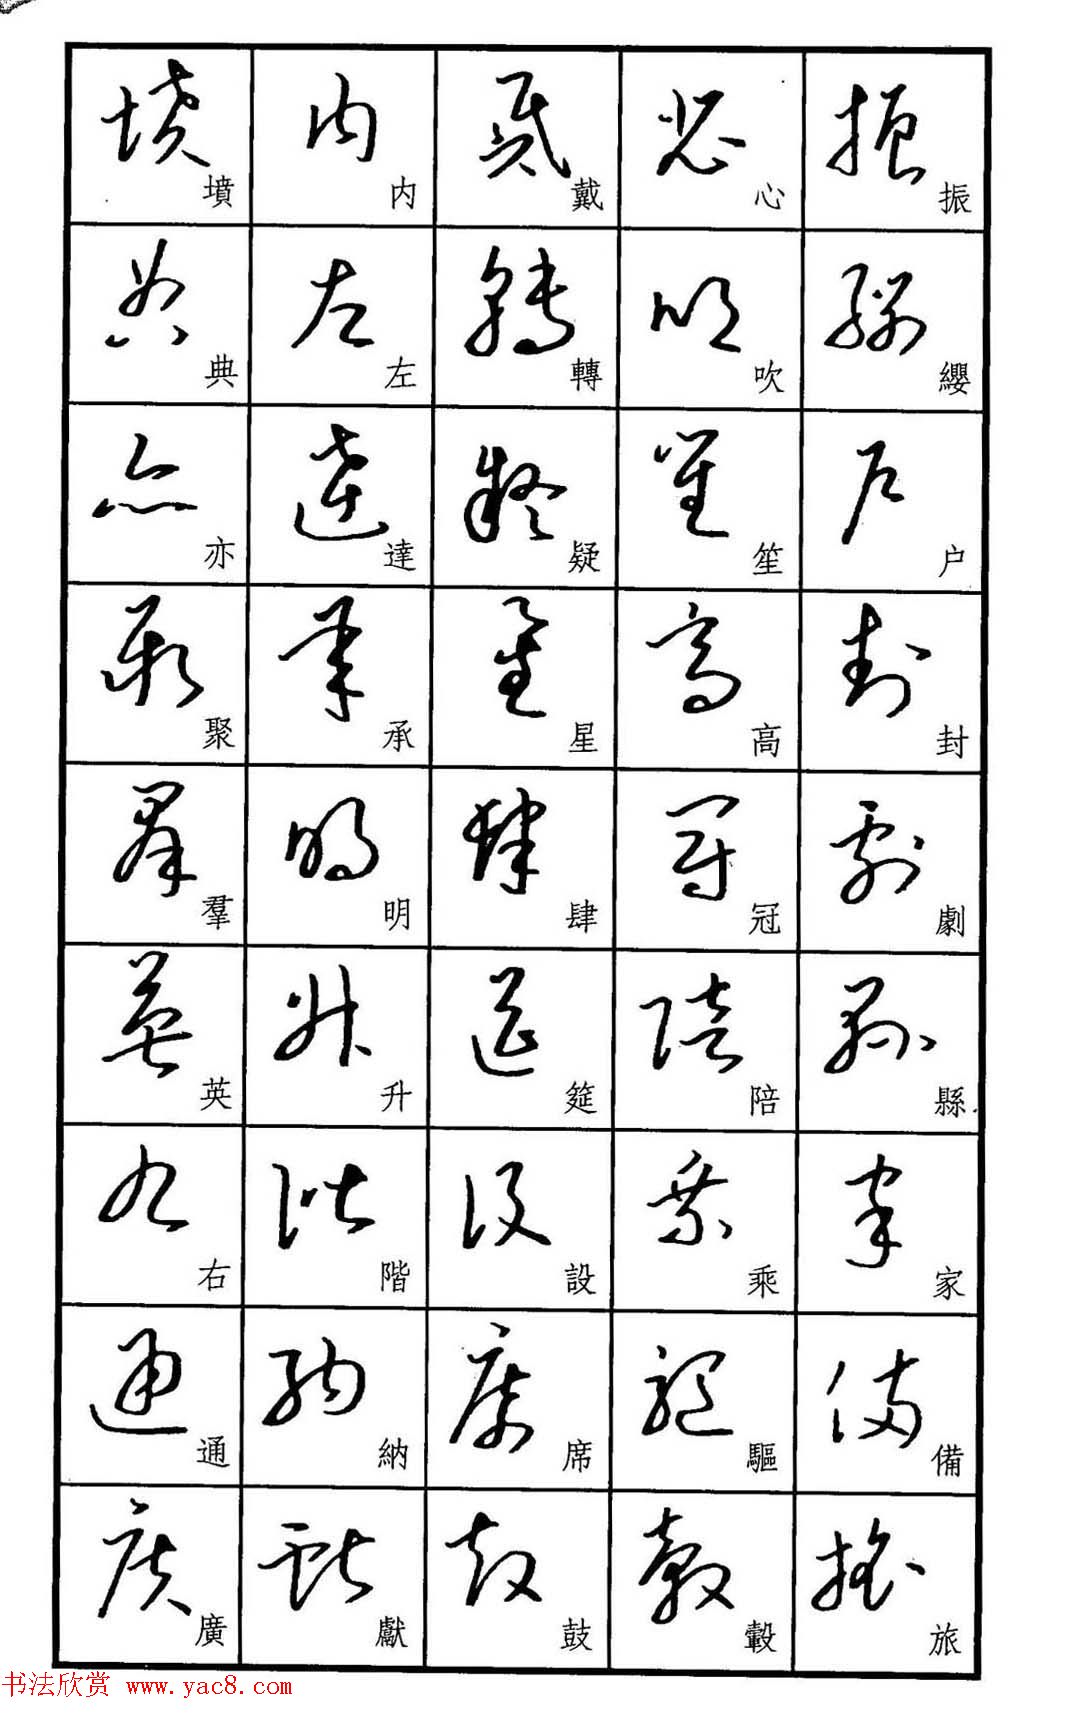 墳典亦聚羣英右通廣
内左達承明升階納獻
戴轉疑星肆筵設席鼓
心吹笙高冠陪乘驅轂
振纓户封劇縣家備旅
书法欣赏 www.yac8.com